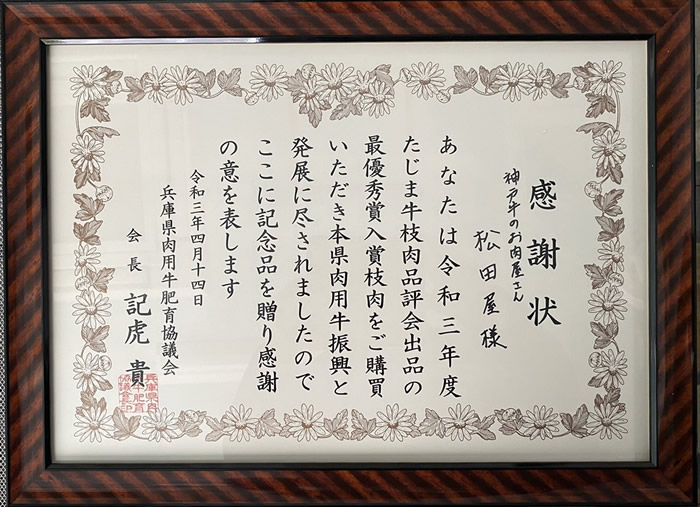 感謝状
神戸牛のお肉屋さん
松田屋様
あなたは令和三年度
たじま牛枝肉品評会出品の
最優秀賞入賞枝肉をご購買
いただき本県肉用牛振興と
発展に尽されましたので
ここに記念品を贈り感謝
の意を表します
令和三年四月十四日
兵庫県肉用牛肥育協議会
会長 記虎 貴
兵庫県肉
用牛肥育
協議会印